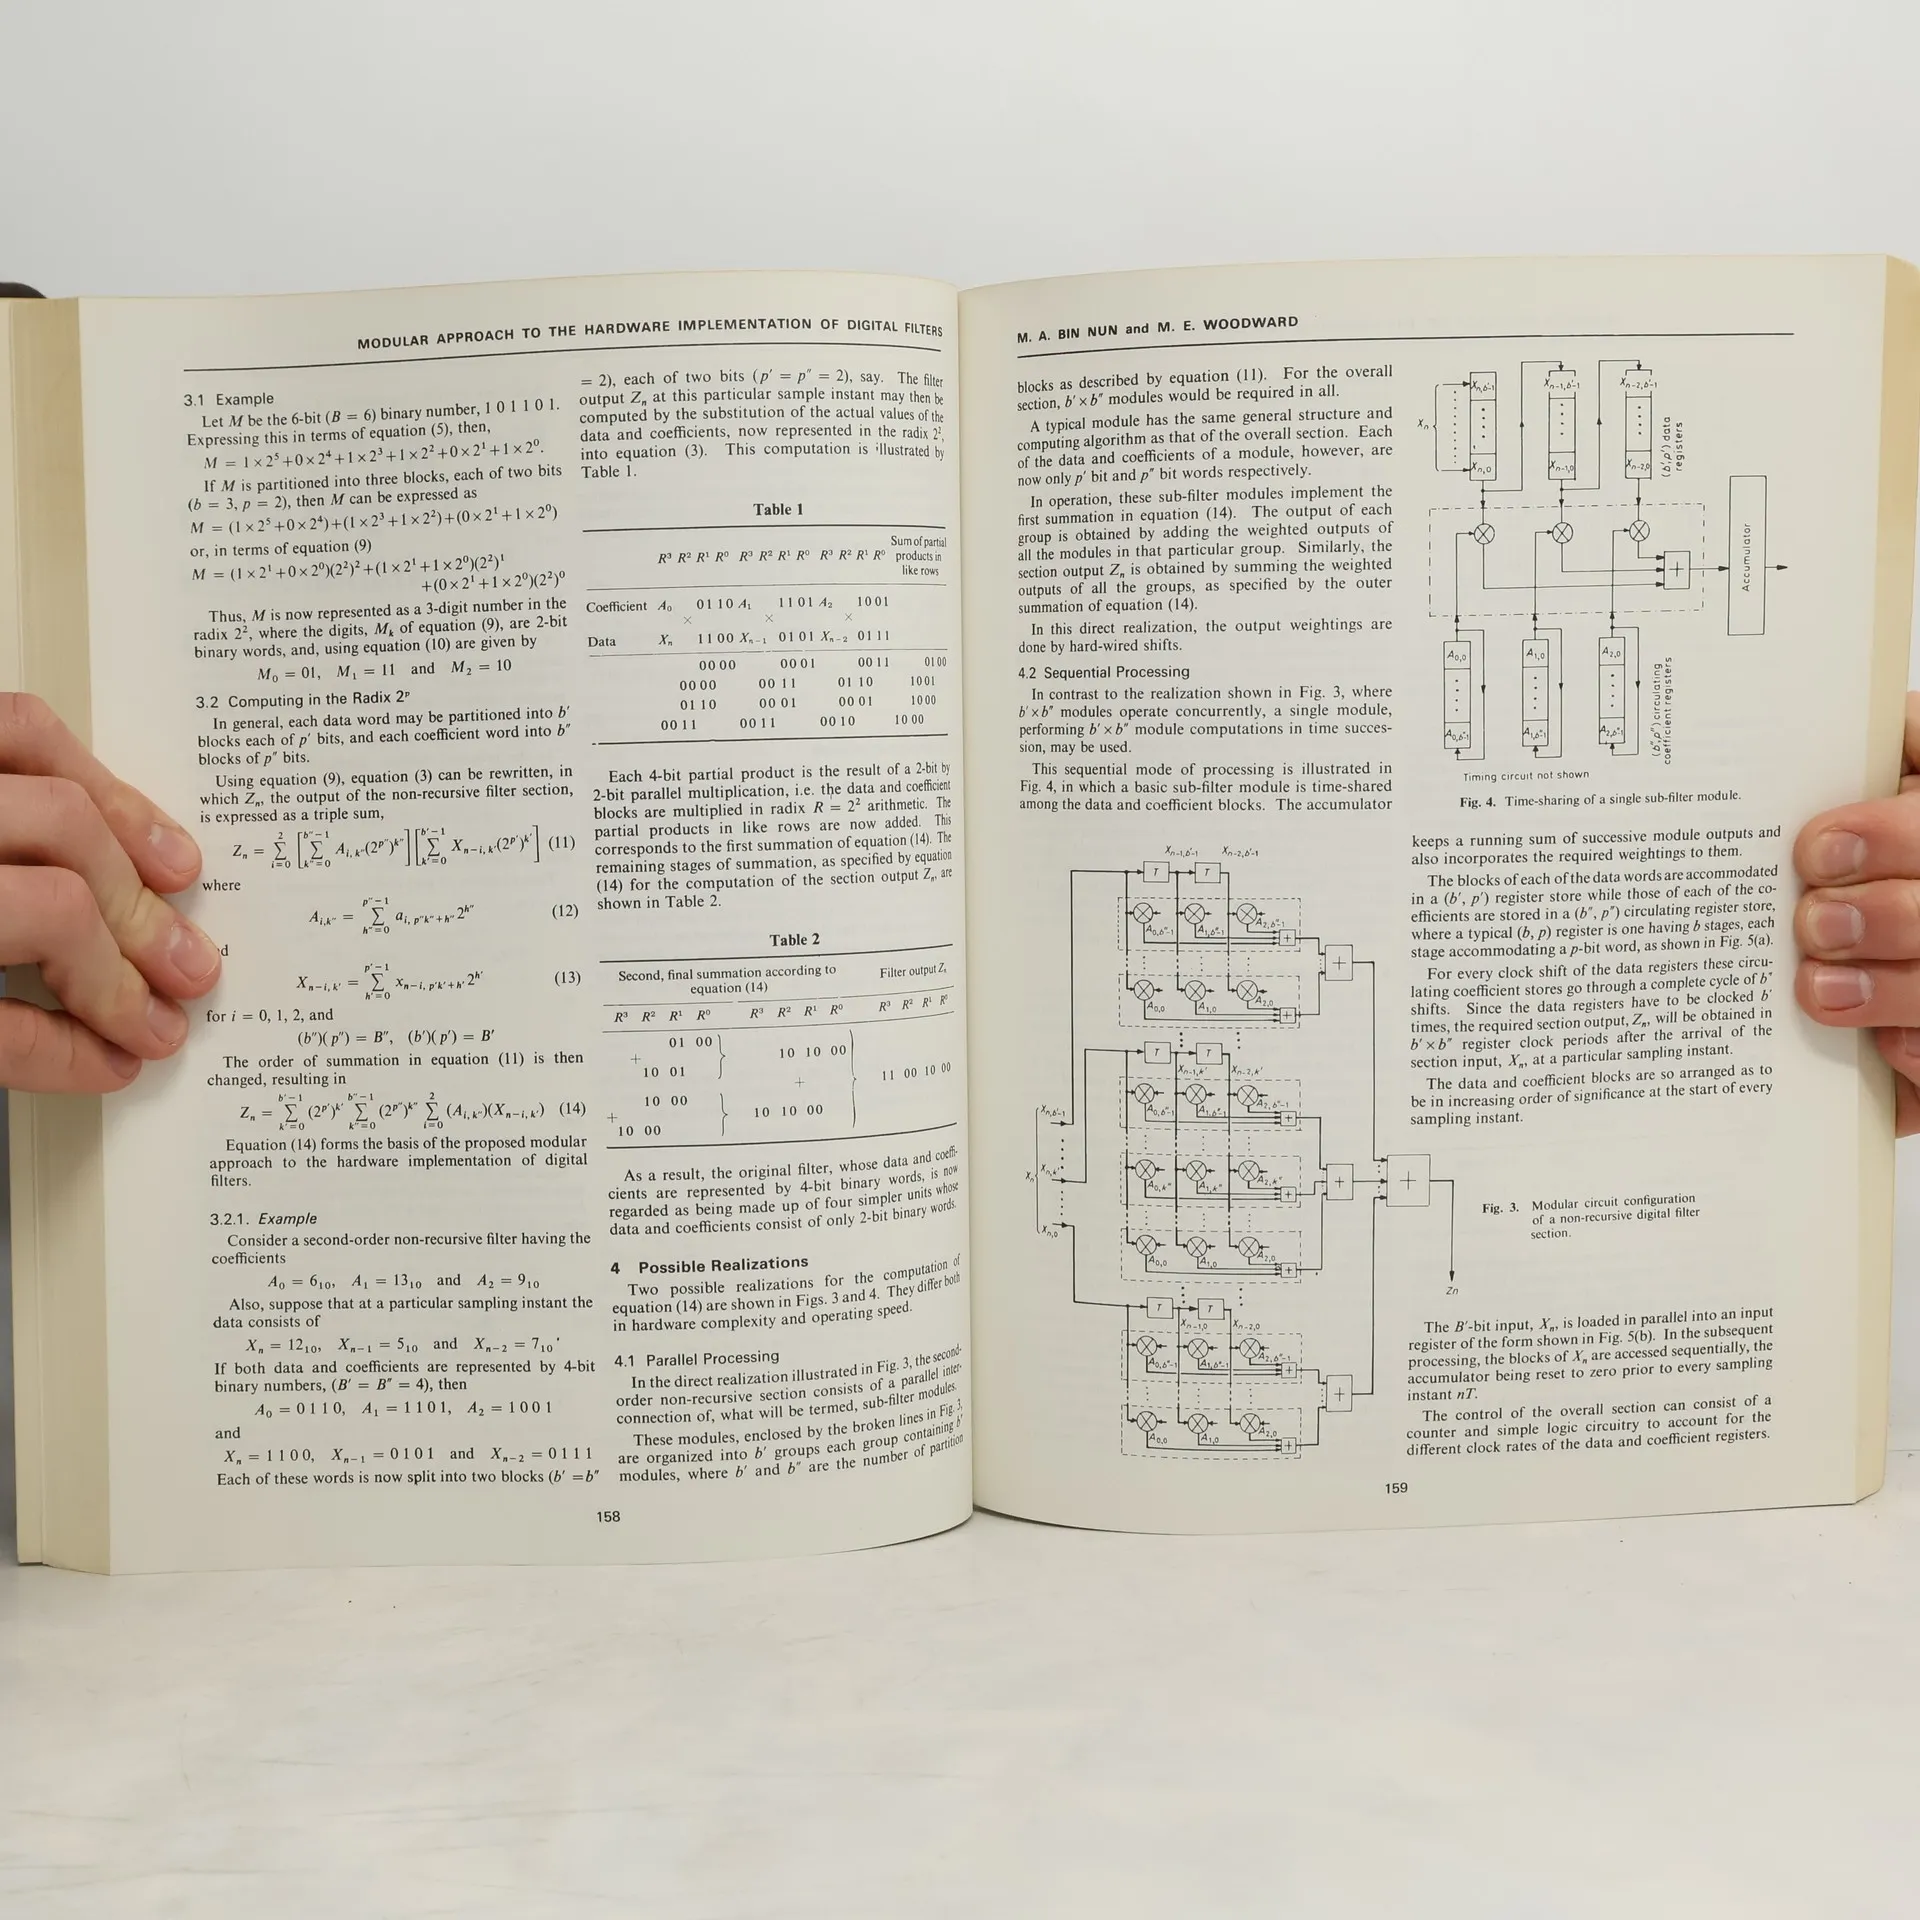 MODULAR APPROACH TO THE HARDWARE IMPLEMENTATION OF DIGITAL FILTERS
3.1 Example
Let M be the 6-bit (B = 6) binary number, 1 0 1 1 0 1.
Expressing this in terms of equation (5), then,
M = 1×2⁵+0×2⁴+1×2³+1×2²+0×2¹+1×2⁰.
If M is partitioned into three blocks, each of two bits
(b = 3, p = 2), then M can be expressed as
M = (1×2⁵+0×2⁴)+(1×2³+1×2²)+(0×2¹+1×2⁰)
or, in terms of equation (9)
M = (1×2¹+0×2⁰)(2²)²+(1×2¹+1×2⁰)(2²)¹
+(0×2¹+1×2⁰)(2²)⁰
Thus, M is now represented as a 3-digit number in the
radix 2², where the digits, Mₖ of equation (9), are 2-bit
binary words, and, using equation (10) are given by
M₀ = 01, M₁ = 11 and M₂ = 10
3.2 Computing in the Radix 2ᵖ
In general, each data word may be partitioned into b′
blocks each of p′ bits, and each coefficient word into b″
blocks of p″ bits.
Using equation (9), equation (3) can be rewritten, in
which Zₙ, the output of the non-recursive filter section,
is expressed as a triple sum,
Zₙ = Σ_{i=0}^{2} [Σ_{k″=0}^{b″−1} A_{i,k″}(2^{p″})^{k″}] [Σ_{k′=0}^{b′−1} X_{n−i,k′}(2^{p′})^{k′}] (11)
where
A_{i,k″} = Σ_{h″=0}^{p″−1} a_{i, p″k″+h″} 2^{h″} (12)
X_{n−i,k′} = Σ_{h′=0}^{p′−1} x_{n−i, p′k′+h′} 2^{h′} (13)
for i = 0, 1, 2, and
(b″)(p″) = B″, (b′)(p′) = B′
The order of summation in equation (11) is then
changed, resulting in
Zₙ = Σ_{k′=0}^{b′−1} (2^{p′})^{k′} Σ_{k″=0}^{b″−1} (2^{p″})^{k″} Σ_{i=0}^{2} (A_{i,k″})(X_{n−i,k′}) (14)
Equation (14) forms the basis of the proposed modular
approach to the hardware implementation of digital
filters.
3.2.1. Example
Consider a second-order non-recursive filter having the
coefficients
A₀ = 6₁₀, A₁ = 13₁₀ and A₂ = 9₁₀
Also, suppose that at a particular sampling instant the
data consists of
Xₙ = 12₁₀, Xₙ₋₁ = 5₁₀ and Xₙ₋₂ = 7₁₀.
If both data and coefficients are represented by 4-bit
binary numbers, (B′ = B″ = 4), then
A₀ = 0 1 1 0, A₁ = 1 1 0 1, A₂ = 1 0 0 1
and
Xₙ = 1 1 0 0, Xₙ₋₁ = 0 1 0 1 and Xₙ₋₂ = 0 1 1 1
Each of these words is now split into two blocks (b′ =b″
= 2), each of two bits (p′ = p″ = 2), say. The filter
output Zₙ at this particular sample instant may then be
computed by the substitution of the actual values of the
data and coefficients, now represented in the radix 2²,
into equation (3). This computation is illustrated by
Table 1.
Table 1
Sum of partial
R³ R² R¹ R⁰ R³ R² R¹ R⁰ R³ R² R¹ R⁰ products in
like rows
Coefficient A₀ 01 10 A₁ 11 01 A₂ 10 01
× × ×
Data Xₙ 11 00 Xₙ₋₁ 01 01 Xₙ₋₂ 01 11
00 00 00 01 00 11 01 00
00 00 00 11 01 10 10 01
01 10 00 01 00 01 10 00
00 11 00 11 00 10 10 00
Each 4-bit partial product is the result of a 2-bit by
2-bit parallel multiplication, i.e. the data and coefficient
blocks are multiplied in radix R = 2² arithmetic. The
partial products in like rows are now added. This
corresponds to the first summation of equation (14). The
remaining stages of summation, as specified by equation
(14) for the computation of the section output Zₙ, are
shown in Table 2.
Table 2
Second, final summation according to Filter output Zₙ
equation (14)
R³ R² R¹ R⁰ R³ R² R¹ R⁰ R³ R² R¹ R⁰
01 00
+ 10 10 00
10 01
+ 11 00 10 00
10 00
+ 10 10 00
10 00
As a result, the original filter, whose data and coeffi-
cients are represented by 4-bit binary words, is now
regarded as being made up of four simpler units whose
data and coefficients consist of only 2-bit binary words.
4 Possible Realizations
Two possible realizations for the computation of
equation (14) are shown in Figs. 3 and 4. They differ both
in hardware complexity and operating speed.
4.1 Parallel Processing
In the direct realization illustrated in Fig. 3, the second-
order non-recursive section consists of a parallel inter-
connection of, what will be termed, sub-filter modules.
These modules, enclosed by the broken lines in Fig. 3,
are organized into b′ groups each group containing b″
modules, where b′ and b″ are the number of partition
158
M. A. BIN NUN and M. E. WOODWARD
blocks as described by equation (11). For the overall
section, b′×b″ modules would be required in all.
A typical module has the same general structure and
computing algorithm as that of the overall section. Each
of the data and coefficients of a module, however, are
now only p′ bit and p″ bit words respectively.
In operation, these sub-filter modules implement the
first summation in equation (14). The output of each
group is obtained by adding the weighted outputs of
all the modules in that particular group. Similarly, the
section output Zₙ is obtained by summing the weighted
outputs of all the groups, as specified by the outer
summation of equation (14).
In this direct realization, the output weightings are
done by hard-wired shifts.
4.2 Sequential Processing
In contrast to the realization shown in Fig. 3, where
b′×b″ modules operate concurrently, a single module,
performing b′×b″ module computations in time succes-
sion, may be used.
This sequential mode of processing is illustrated in
Fig. 4, in which a basic sub-filter module is time-shared
among the data and coefficient blocks. The accumulator
Xₙ
X_{n,b′-1} X_{n-1,b′-1} X_{n-2,b′-1}
X_{n,0} X_{n-1,0} X_{n-2,0}
(b′,p′) data
registers
+
Accumulator
A_{0,0} A_{1,0} A_{2,0}
A_{0,b″-1} A_{1,b″-1} A_{2,b″-1}
(b″,p″) circulating
coefficient registers
Timing circuit not shown
Fig. 4. Time-sharing of a single sub-filter module.
X_{n-1,b′-1} X_{n-2,b′-1}
T T
A_{0,b″-1} A_{1,b″-1} A_{2,b″-1} +
+
A_{0,0} A_{1,0} A_{2,0} +
T T
X_{n-1,k′} X_{n-2,k′}
X_{n,b′-1}
A_{0,b″-1} A_{1,b″-1} A_{2,b″-1} +
Xₙ X_{n,k′}
A_{0,k″} A_{1,k″} A_{2,k″} + + +
X_{n,0}
A_{0,0} A_{1,0} A_{2,0} +
Zn
T T
X_{n-1,0} X_{n-2,0}
A_{0,b″-1} A_{1,b″-1} A_{2,b″-1} +
+
A_{0,0} A_{1,0} A_{2,0} +
Fig. 3. Modular circuit configuration
of a non-recursive digital filter
section.
keeps a running sum of successive module outputs and
also incorporates the required weightings to them.
The blocks of each of the data words are accommodated
in a (b′, p′) register store while those of each of the co-
efficients are stored in a (b″, p″) circulating register store,
where a typical (b, p) register is one having b stages, each
stage accommodating a p-bit word, as shown in Fig. 5(a).
For every clock shift of the data registers these circu-
lating coefficient stores go through a complete cycle of b″
shifts. Since the data registers have to be clocked b′
times, the required section output, Zₙ, will be obtained in
b′×b″ register clock periods after the arrival of the
section input, Xₙ, at a particular sampling instant.
The data and coefficient blocks are so arranged as to
be in increasing order of significance at the start of every
sampling instant.
The B′-bit input, Xₙ, is loaded in parallel into an input
register of the form shown in Fig. 5(b). In the subsequent
processing, the blocks of Xₙ are accessed sequentially, the
accumulator being reset to zero prior to every sampling
instant nT.
The control of the overall section can consist of a
counter and simple logic circuitry to account for the
different clock rates of the data and coefficient registers.
159